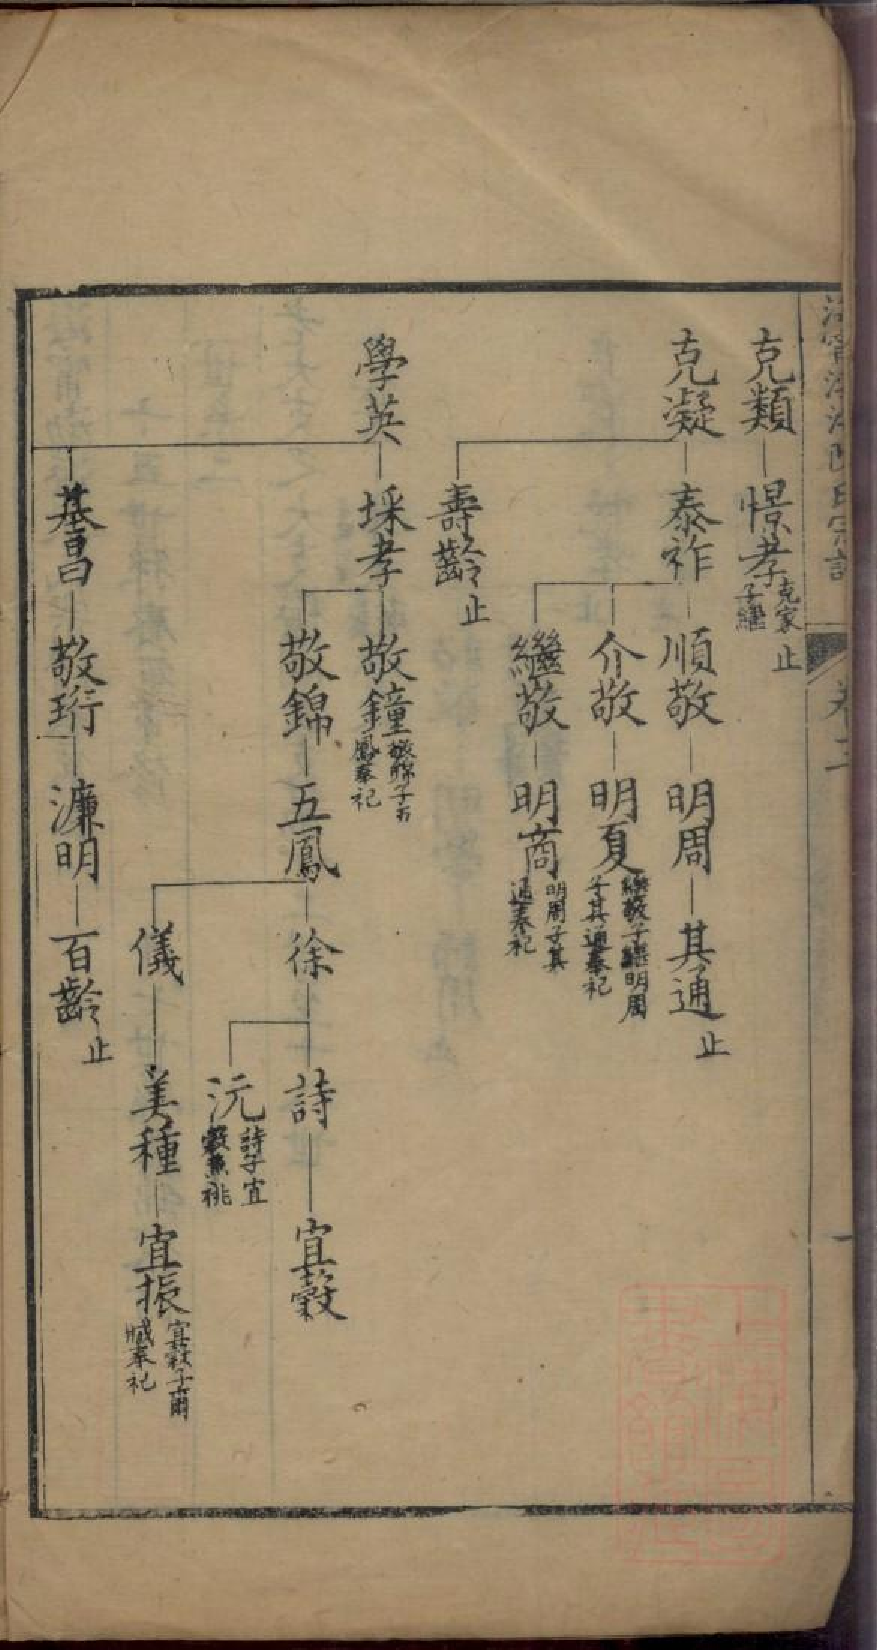 克類
憬孝
克家
子繼
止
克凝
泰祚
順敬
明周
其通
止
介敬
明夏
繼敬子繼明周
子其通奉祀
繼敬
明商
明周子其
通奉祀
壽齡
止
學英
埰孝
敬鐘
敬錦子五
鳳奉祀
敬錦
五鳳
徐
詩
宜穀
沅
詩子宜
穀兼祧
儀
美種
宜振
宜穀子爾
臧奉祀
基昌
敬珩
濂明
百齡
止
卷二